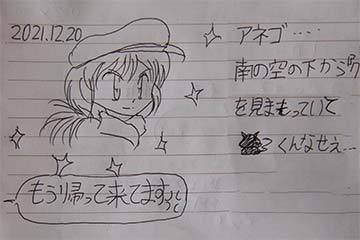 2021.12.20
アネゴ‥‥
南の空の下から
を見まもっていて
くんなせぇ…
もう帰って来てますぅ